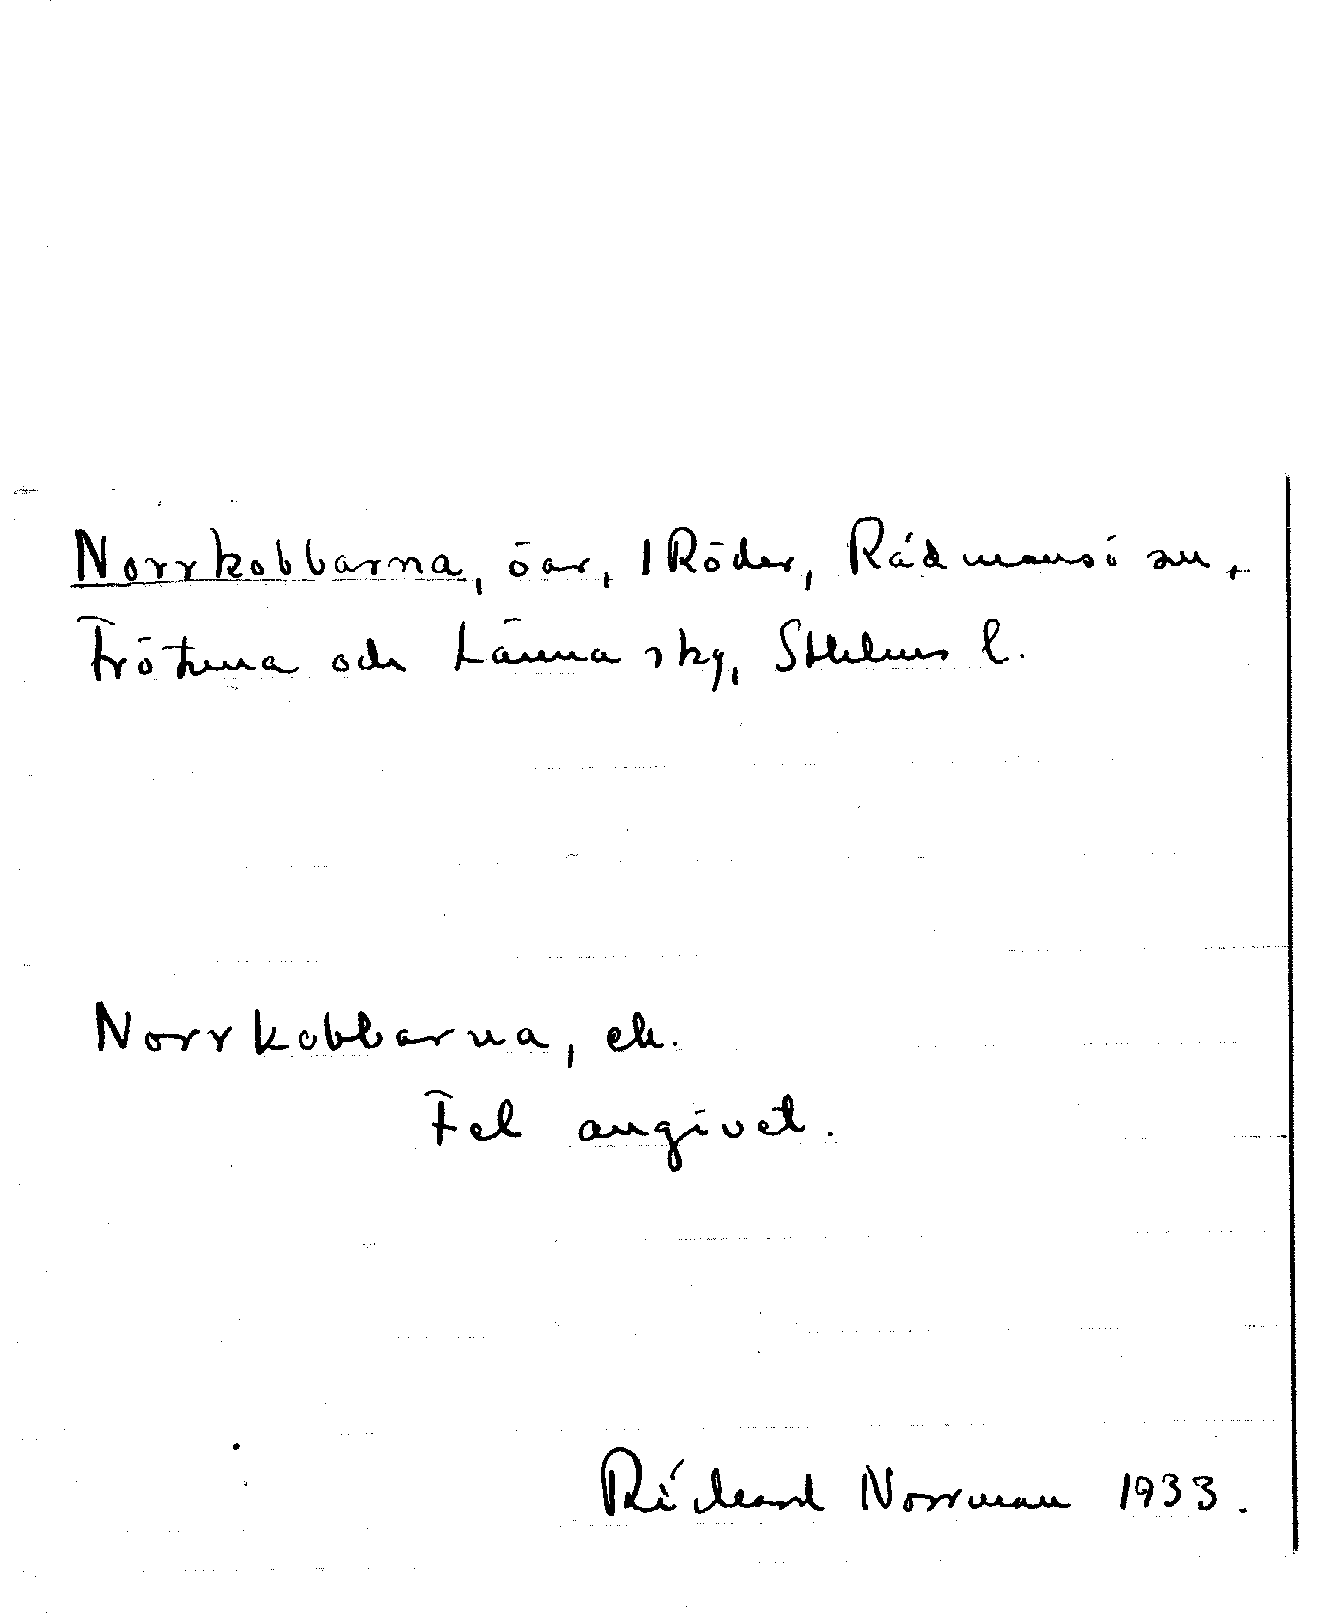 Norrkobbarna, öar, I Röder, Rådmansö sn,
Frötuna och Länna skg, Sthlms l.
Norrkobbarna, ek.
Fel angivet.
Rickard Norrman 1933.